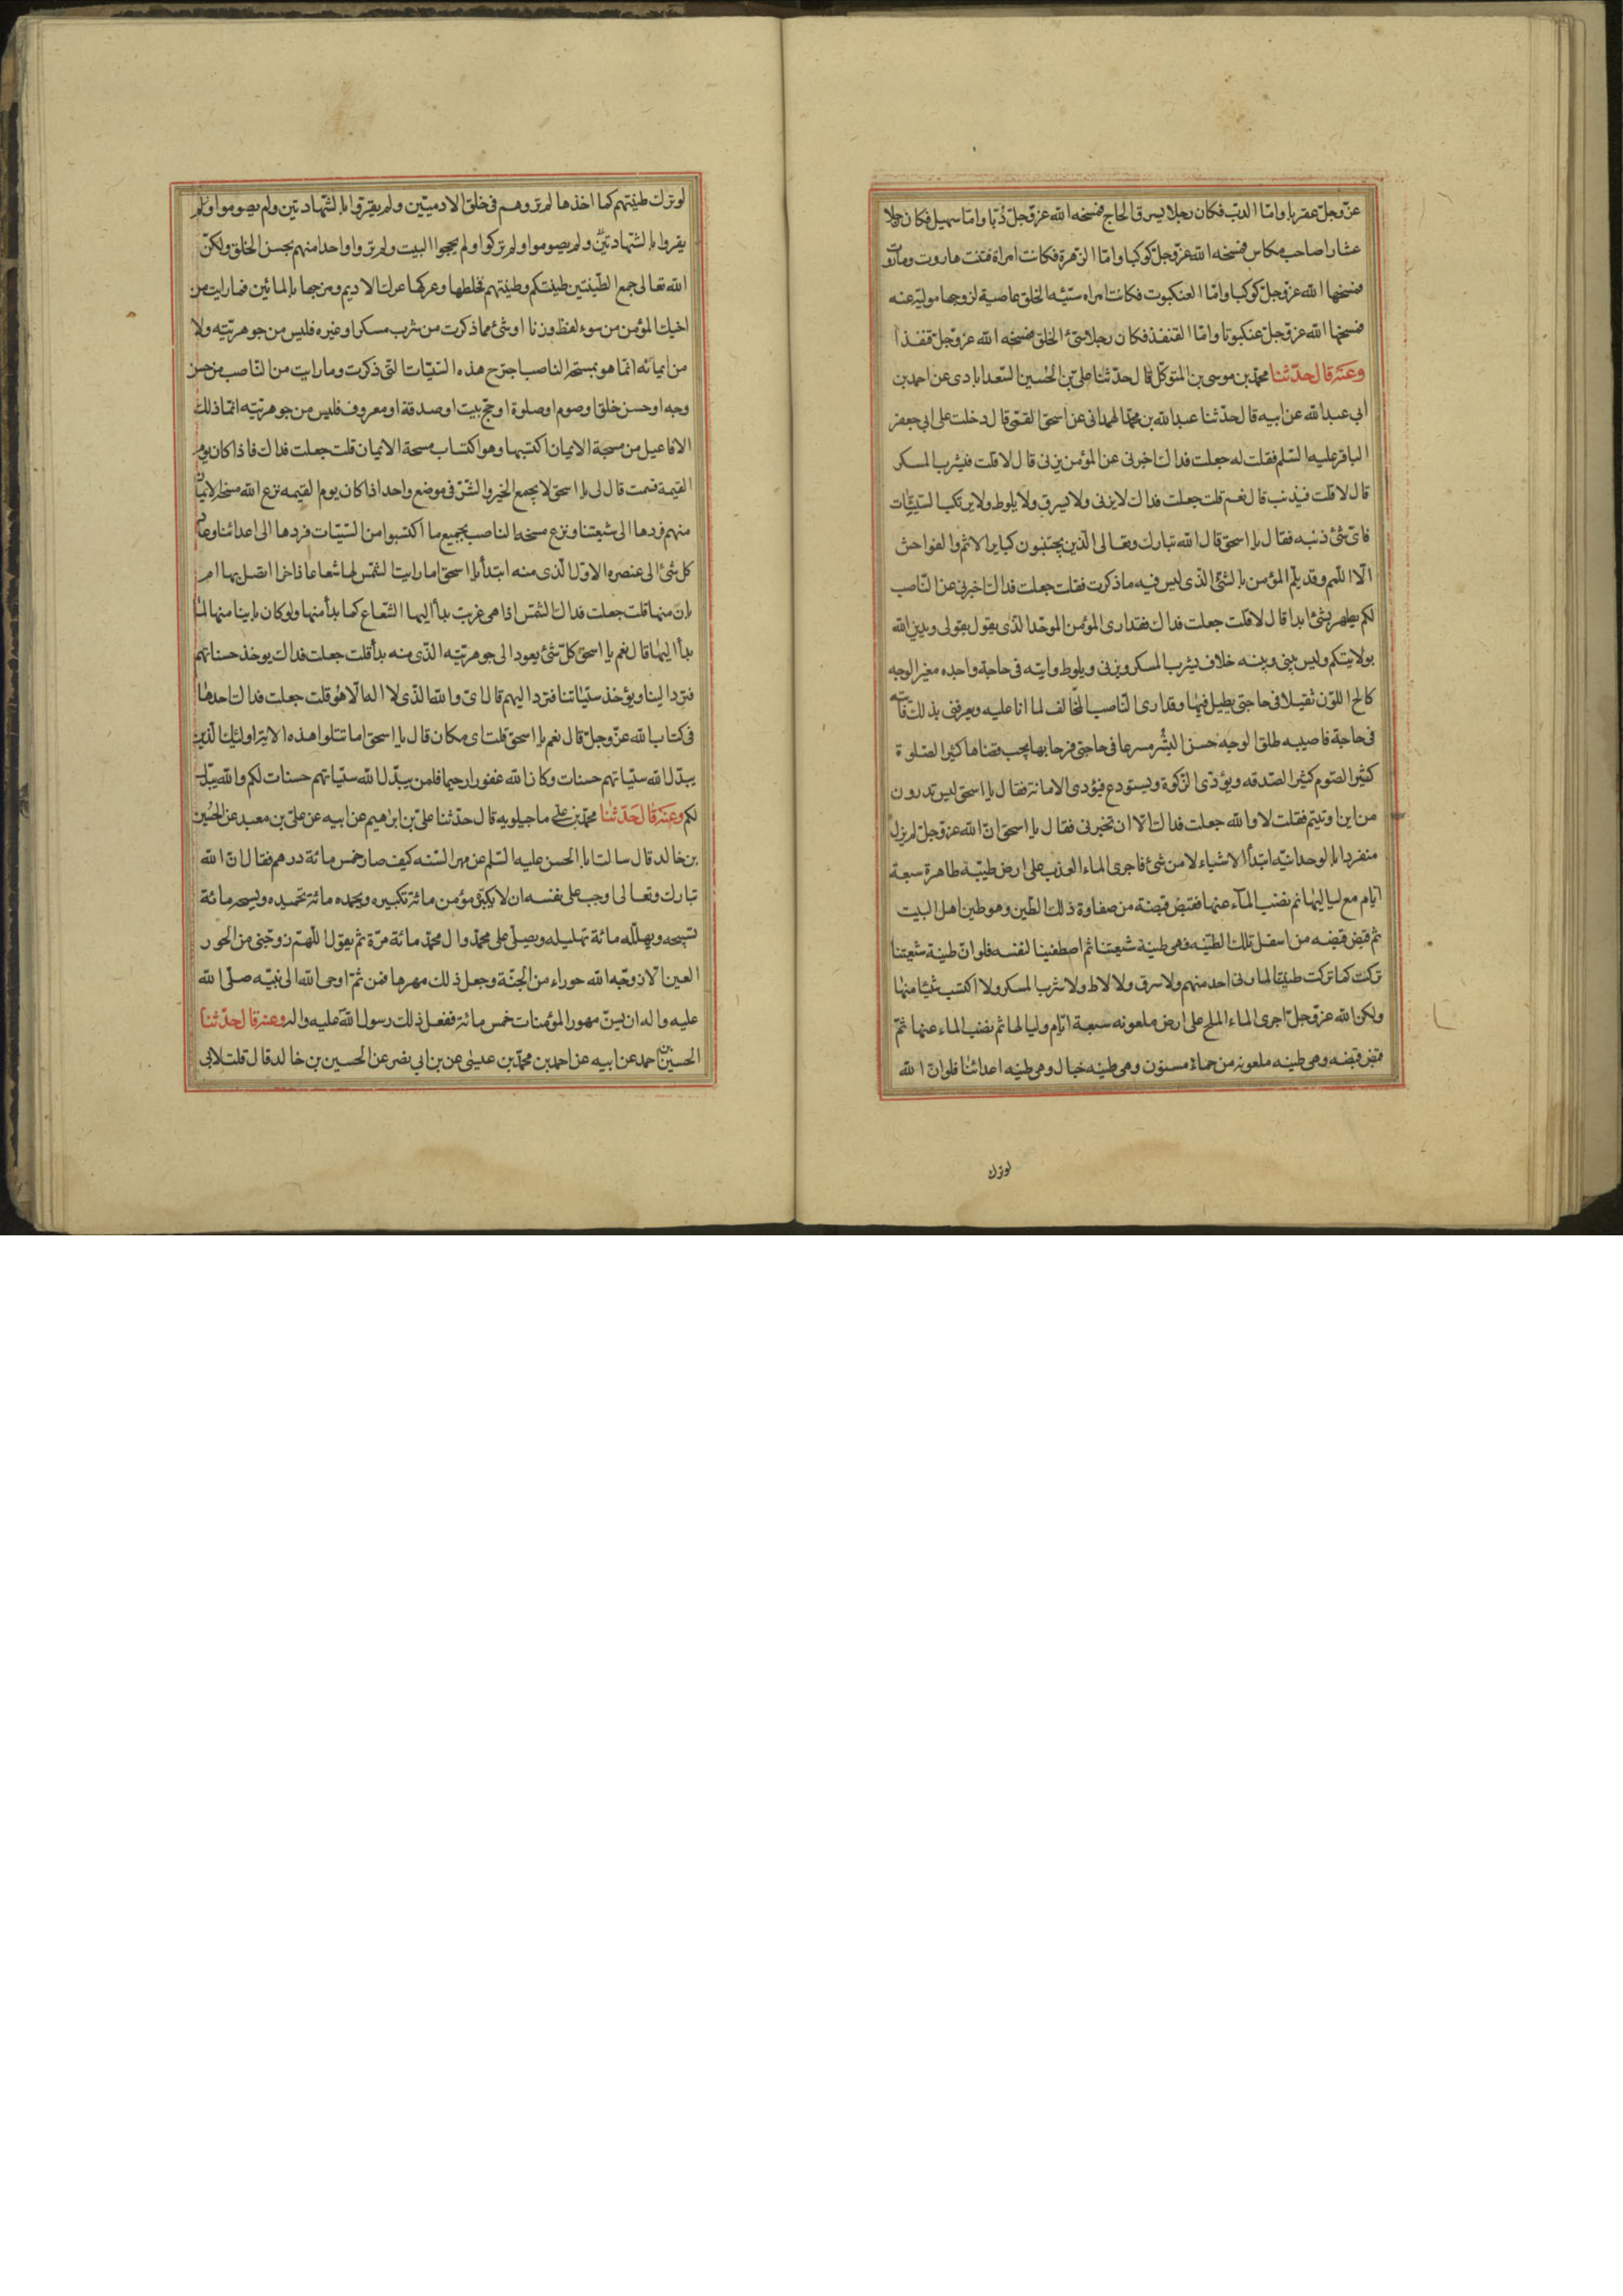 عزّ وجلّ عقربا وامّا الدبّ فكان رجلا يسرق الحاج فمسخه الله عزّ وجلّ دُبّا وامّا سهيل فكان رجلا
عشارا صاحب مكاس فمسخه الله عزّ وجلّ كوكبا وامّا الزهرة فكانت امراة فتنت هاروت وماروت
فمسخها الله عزّ وجلّ كوكبا وامّا العنكبوت فكانت امراه سيّئه الخلق عاصية لزوجها موليّة عنه
فمسخها الله عزّ وجلّ عنكبوتا وامّا القنفذ فكان رجلا سيّئ الخلق فمسخه الله عزّ وجلّ قنفذا
وعنه قال حدّثنا محمّد بن موسى بن المتوكّل قال حدّثنا علىّ بن الحسين السّعدابادى عن احمد بن
ابى عبد الله عن ابيه قال حدّثنا عبد الله بن محمّد الهمدانى عن اسحق القمّى قال دخلت على ابى جعفر
الباقر عليه السّلم فقلت له جعلت فداك اخبرنى عن المؤمن يزنى قال لا قلت فيشرب المسكر
قال لا قلت فيذنب قال نعم قلت جعلت فداك لا يزنى ولا يسرق ولا يلوط ولا يرتكب السّيئات
فاىّ شئ ذنبه فقال يا اسحق قال الله تبارك وتعالى الّذين يجتنبون كباير الاثم والفواحش
الّا اللّمم وقد يلّم المؤمن بالشئ الّذى ليس فيه ما ذكرت فقلت جعلت فداك اخبرنى عن النّاصب
لكم يطهر بشئ ابدا قال لا قلت جعلت فداك فقد ارى المؤمن الموحّد الّذى يقول بقولى ويدين الله
بولايتكم وليس بينى وبينه خلاف يشرب المسكر ويزنى ويلوط واتيه فى حاجة واحده معبر الوجه
كالح اللّون ثقيلا فى حاجتى بطئ فيها وقد ارى النّاصب المخالف لما انا عليه ويعرفنى بذلك فاتيه
فى حاجة فاصيبه طلق الوجه حسن البشر مسرعا فى حاجتى فرحا بها يحب قضاها كثير الصّلوة
كثير الصّوم كثير الصّدقه ويؤدّى الزّكوة ويستودع فيؤدى الامانة فقال يا اسحق ليس تدرون
من اين اوتيتم فقلت لا والله جعلت فداك الّا ان تخبرنى فقال يا اسحق انّ الله عزّ وجلّ لم يزل
منفردا بالوحدانيّة ابتدأ الاشياء لا من شئ فاجرى الماء العذب على ارض طيّبة طاهرة سبعة
ايّام مع لياليها ثم نضب المآء عنها فقبض قبضة من صفاوة ذلك الطّين وهو طين اهل البيت
ثم قبض قبضه من اسفل تلك الطينه فهى طينة شيعتنا ثم اصطفينا لنفسه فلو انّ طينة شيعتنا
تركت كما تركت طينتنا لما زنى احد منهم ولا سرق ولا لاط ولا شرب المسكر ولا اكتسب شيئا منها
ولكن الله عزّ وجلّ اجرى الماء الملح على ارض ملعونه سبعة ايّام ولياليها ثم نضب الماء عنها ثمّ
قبض قبضه وهى طينه ملعونه من حماء مسنون وهى طينه خبال وهى طينه اعدائنا فلو انّ الله
لو ترك
لو ترك طينتهم كما اخذها لم تروهم فى خلق الادميّين ولم يقرّوا بالشّهادتين ولم يصوموا ولم
يقروا بالشّهادتين ولم يصوموا ولم يزكوا ولم يحجوا البيت ولم تروا واحدا منهم بحسن الخلق ولكنّ
الله تعالى جمع الطّينتين طينتكم وطينتهم فخلطها وعركها عرك الاديم ومزجها بالمائين فما رايت من
اخيك المؤمن من سوء لفظ وزنا او شئ مما ذكرت من شرب مسكر او غيره فليس من جوهريّته ولا
من ايمانه انّما هو بمسحة الناصب اجترح هذه السّيّات التى ذكرت وما رايت من النّاصب من حسن
وجه او حسن خلق او صوم او صلوة او حجّ بيت او صدقة او معروف فليس من جوهريّته انّما ذلك
الافاعيل من مسحة الايمان اكتسبها وهو اكتساب مسحة الايمان قلت جعلت فداك فاذا كان يوم
القيمة فمت قال لى يا اسحق لا يجمع الخير والشّرّ فى موضع واحد اذا كان يوم القيمه نزع الله مسحة الايمان
منهم فردها الى شيعتنا ونزع مسحة الناصب بجميع ما اكتسبوا من السّيّات فردها الى اعدائنا وعاد
كل شئ الى عنصره الاوّل الّذى منه ابتدأ يا اسحق اما رايت الشّمس لها شعاعا فاخرا اتصل بها ام
باين منها قلت جعلت فداك الشّمس اذا هى غربت بدأ اليها الشّعاع كما بدأ منها ولو كان باينا منها لما
بدأ اليها قال نعم يا اسحق كلّ شئ يعود الى جوهريّته الّذى منه بدأ قلت جعلت فداك يوخذ حسناتهم
فتردّ الينا ويؤخذ سيّئاتنا فتردّ اليهم قال اى والله الّذى لا اله الّا هو قلت جعلت فداك اجدها
فى كتاب الله عزّ وجلّ قال نعم يا اسحق قلت اى مكان قال يا اسحق اما تتلوا هذه الاية اولئك الّذين
يبدّل الله سيّئاتهم حسنات وكان الله غفورا رحيما فلم يبدّل الله سيّئاتهم حسنات لكم والله يبدّل
لكم وعنه قال حدّثنا محمّد بن على ماجيلويه قال حدّثنا علىّ بن ابرهيم عن ابيه عن علىّ بن معبد عن الحسين
بن خالد قال سالت ابا الحسن عليه السّلم عن مهر السّنه كيف صار خمس مائة درهم فقال انّ الله
تبارك وتعالى اوجب على نفسه ان لا يكبّره مؤمن مائة تكبيره ويحمده مائة تحميده ويسبحه مائة
تسبيحه ويهلّله مائة تهليله ويصلّى على محمّد وال محمّد مائة مرّة ثم يقول اللّهمّ زوّجنى من الحور
العين الّا زوّجه الله حوراء من الجنّة وجعل ذلك مهرها فمن ثمّ اوحى الله الى نبيّه صلّى الله
عليه واله ان يسنّ مهور المؤمنات خمس مائة ففعل ذلك رسول الله عليه واله وعنه قال حدّثنا
الحسين بن احمد عن ابيه عن احمد بن محمّد بن عيسى عن بن ابى نصر عن الحسين بن خالد قال قلت لابى